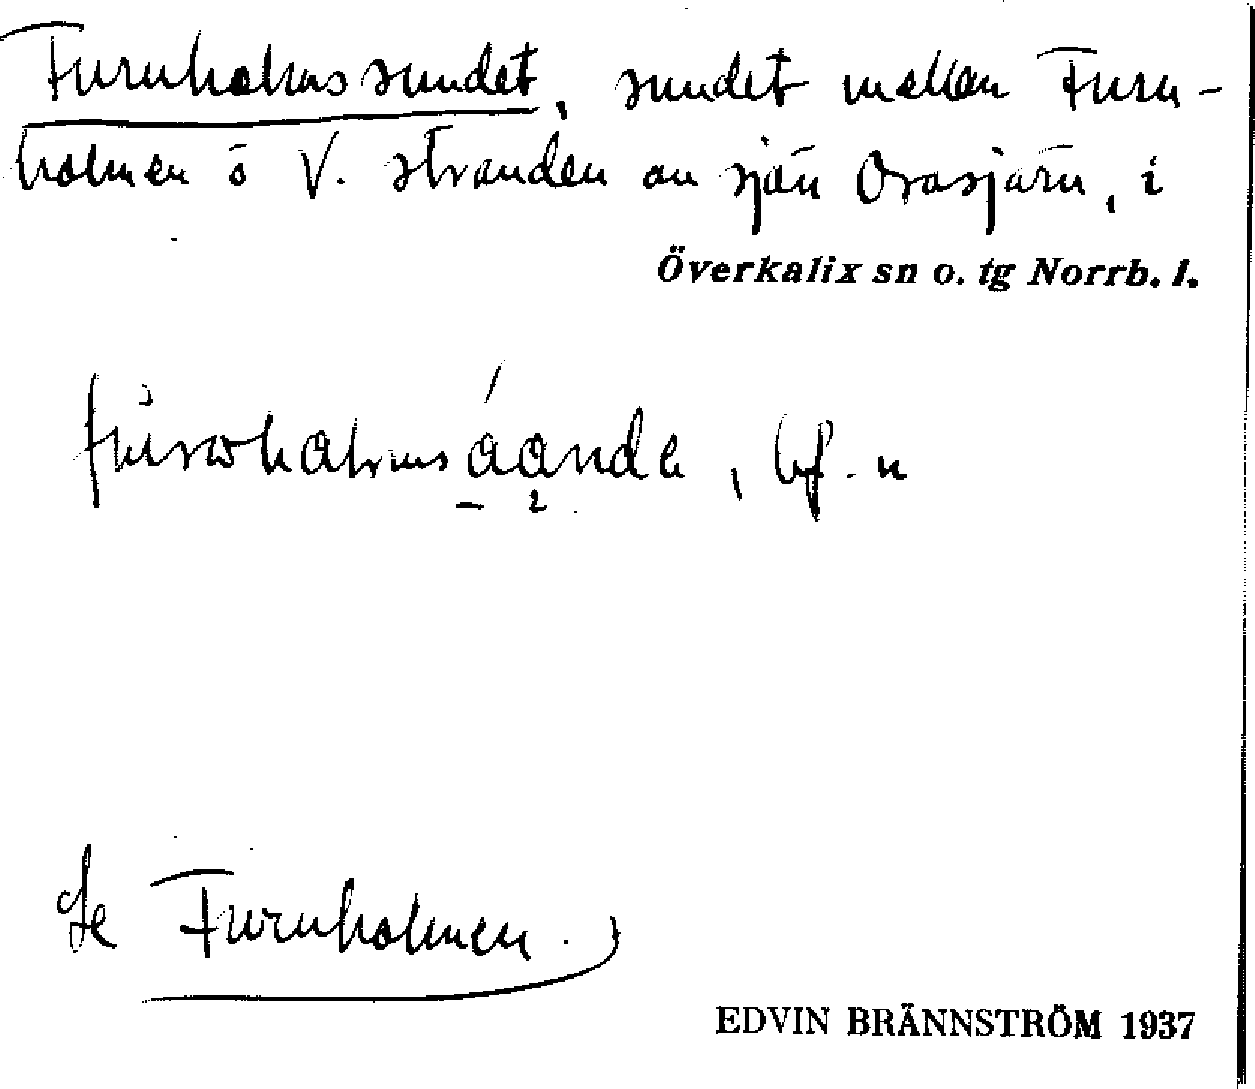 Furuholmssundet, sundet mellan Furu-
holmen o V. stranden av sjön Orasjärv, i
Överkalix sn o. tg Norrb. l.
, bf. n
Se Furuholmen.
EDVIN BRÄNNSTRÖM 1937